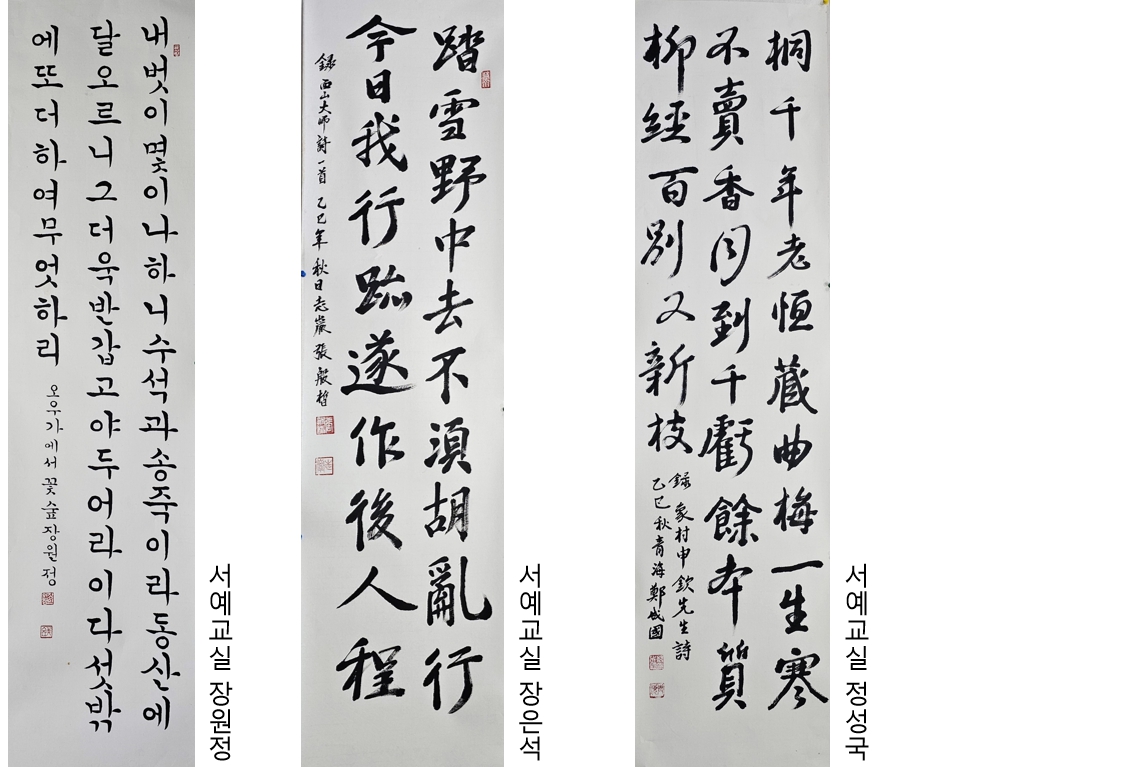 내벗이몇이나하니수석과송죽이라동산에
달오르니그더욱반갑고야두어라이다섯밖
에또더하여무엇하리
오우가에서 꽃숲 장원정
서예교실 장원정
踏雪野中去不須胡亂行
今日我行跡遂作後人程
錄 西山大師 詩一首 乙巳年 秋日 志巖 張殷晳
서예교실 장은석
桐千年老恒藏曲梅一生寒
不賣香月到千虧餘本質
柳經百別又新枝
錄 象村申欽先生詩
乙巳秋青海
서예교실 정성국